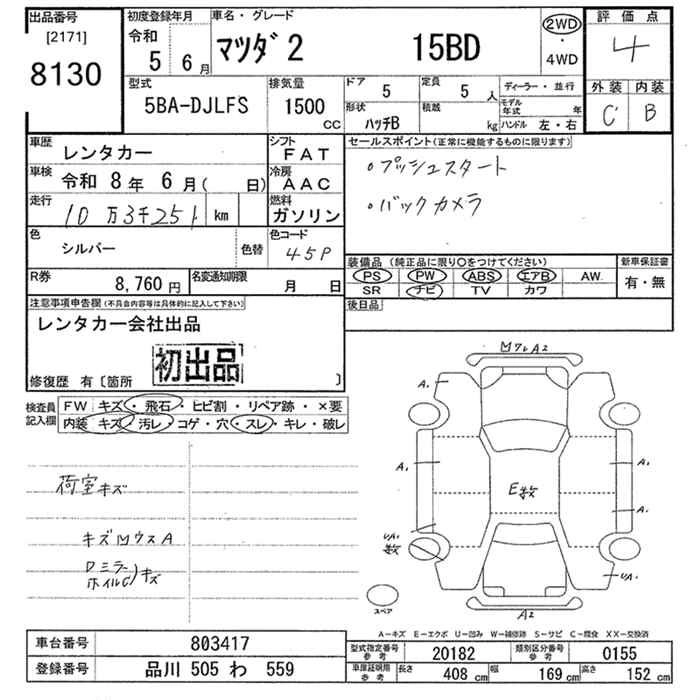 出品番号 [2171] 8130
初度登録年月 令和 5 6月
車名・グレード マツダ2 15BD
2WD ・ 4WD
評価点 4
外装 C' 内装 B
型式 5BA-DJLFS
排気量 1500 cc
ドア 5
定員 5 人
形状 ハッチB
積載 kg
ディーラー・並行
モデル年式 年
ハンドル 左・右
車歴 レンタカー
シフト FAT
車検 令和 8年 6月( 日)
冷房 AAC
走行 10万3千251 km
燃料 ガソリン
色 シルバー 色替
色コード 45P
R券 8,760円
名変通知期限 月 日
セールスポイント(正常に機能するものに限ります)
・プッシュスタート
・バックカメラ
装備品 (純正品に限り○をつけてください)
PS PW ABS エアB AW
SR ナビ TV カワ
新車保証書 有・無
後日品
注意事項申告欄(不具合内容等は具体的に記入して下さい)
レンタカー会社出品
初出品
修復歴 有〔箇所 〕
検査員記入欄
FW キズ・飛石・ヒビ割・リペア跡・×要
内装 キズ・汚レ・コゲ・穴・スレ・キレ・破レ
荷室キズ
キズ凹ウスA
ミラー
ホイルC)キズ
A2
A1
A1
A1
A1
E数
UA1
数
UA1
スペア
A2
A-キズ E-エクボ U-凹み W-補修跡 S-サビ C-腐食 XX-交換済
車台番号 803417
登録番号 品川 505 わ 559
型式指定番号 参考 20182
類別区分番号 参考 0155
車庫証明用 参考 長さ 408 cm 幅 169 cm 高さ 152 cm